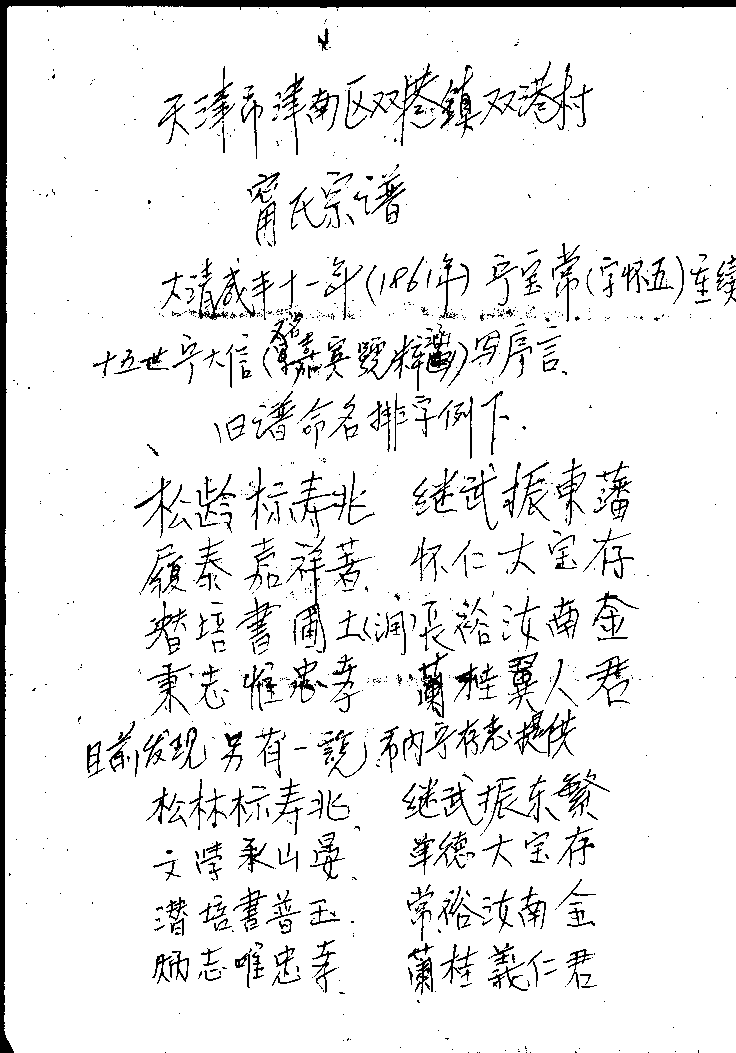 天津市津南区双港镇双港村
甯氏宗谱
大清咸丰十一年(1861年)宁宝常(字怀五)重续
十五世宁大信(又名嘉宾 )写序言、
旧谱命名排字例下.
松龄标寿兆 继武振東藩
嶺泰嘉祥蓍 怀仁大宝存
潜培書圃土(润)長裕汝南金
秉志惟忠孝 蘭桂翼人君
目前发现另有一説,市内宁存志提供
松林标寿兆、 继武振东繁
文荣承山晏、 单德大宝存
潜培書普玉、 常裕汝南金
炳志唯忠孝、 蘭桂義仁君